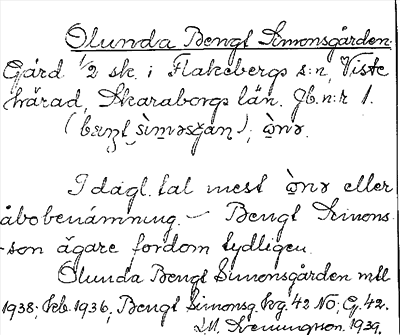 Olunda Bengt Simonsgården.
Gård 1/2 sk. i Flakebergs s:n, Viste
härad, Skaraborgs län. Jb. n:r 1.
I dagl. tal mest eller
åbobenämning. — Bengt Simons-
son ägare fordom tydligen.
Ölunda Bengt Simonsgården mtl
1938; 1936; Bengt Simonsg. kg. 42 NO; G. 42.
1939.